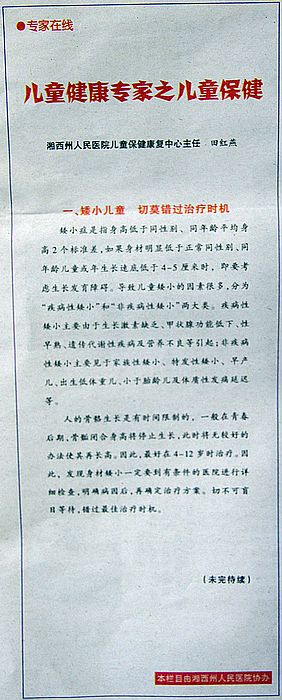 ●专家在线
儿童健康专家之儿童保健
湘西州人民医院儿童保健康复中心主任 田红燕
一、矮小儿童 切莫错过治疗时机
矮小症是指身高低于同性别、同年龄平均身
高2个标准差,如果身材明显低于正常同性别、同
年龄儿童或年生长速底低于4-5厘米时,即要考
虑生长发育障碍。导致儿童矮小的因素很多,分为
“疾病性矮小”和“非疾病性矮小”两大类。疾病性
矮小主要由于生长激素缺乏、甲状腺功能低下、性
早熟、遗传代谢性疾病及营养不良等引起;非疾病
性矮小主要见于家族性矮小、特发性矮小、早产
儿、出生低体重儿、小于胎龄儿及体质性发痛延迟
等。
人的骨骼生长是有时间限制的,一般在青春
后期,骨骺闭合身高将停止生长,此时将无较好的
办法使其再长高。因此,最好在4-12岁时治疗。因
此,发现身材矮小一定要到有条件的医院进行详
细检查,明确病因后,再确定治疗方案。切不可盲
目等待,错过最佳治疗时机。
(未完待续)
本栏目由湘西州人民医院协办